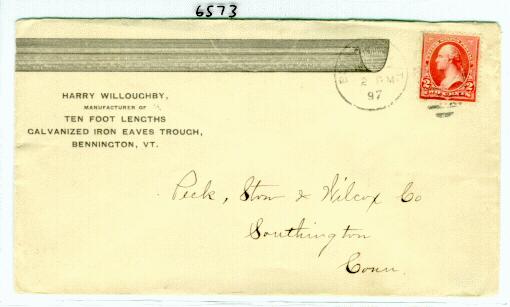 6573
HARRY WILLOUGHBY,
MANUFACTURER OF
TEN FOOT LENGTHS
GALVANIZED IRON EAVES TROUGH,
BENNINGTON, VT.
2
97
2 TWO CENTS 2
Peck, Stow & Wilcox Co
Southington
Conn.